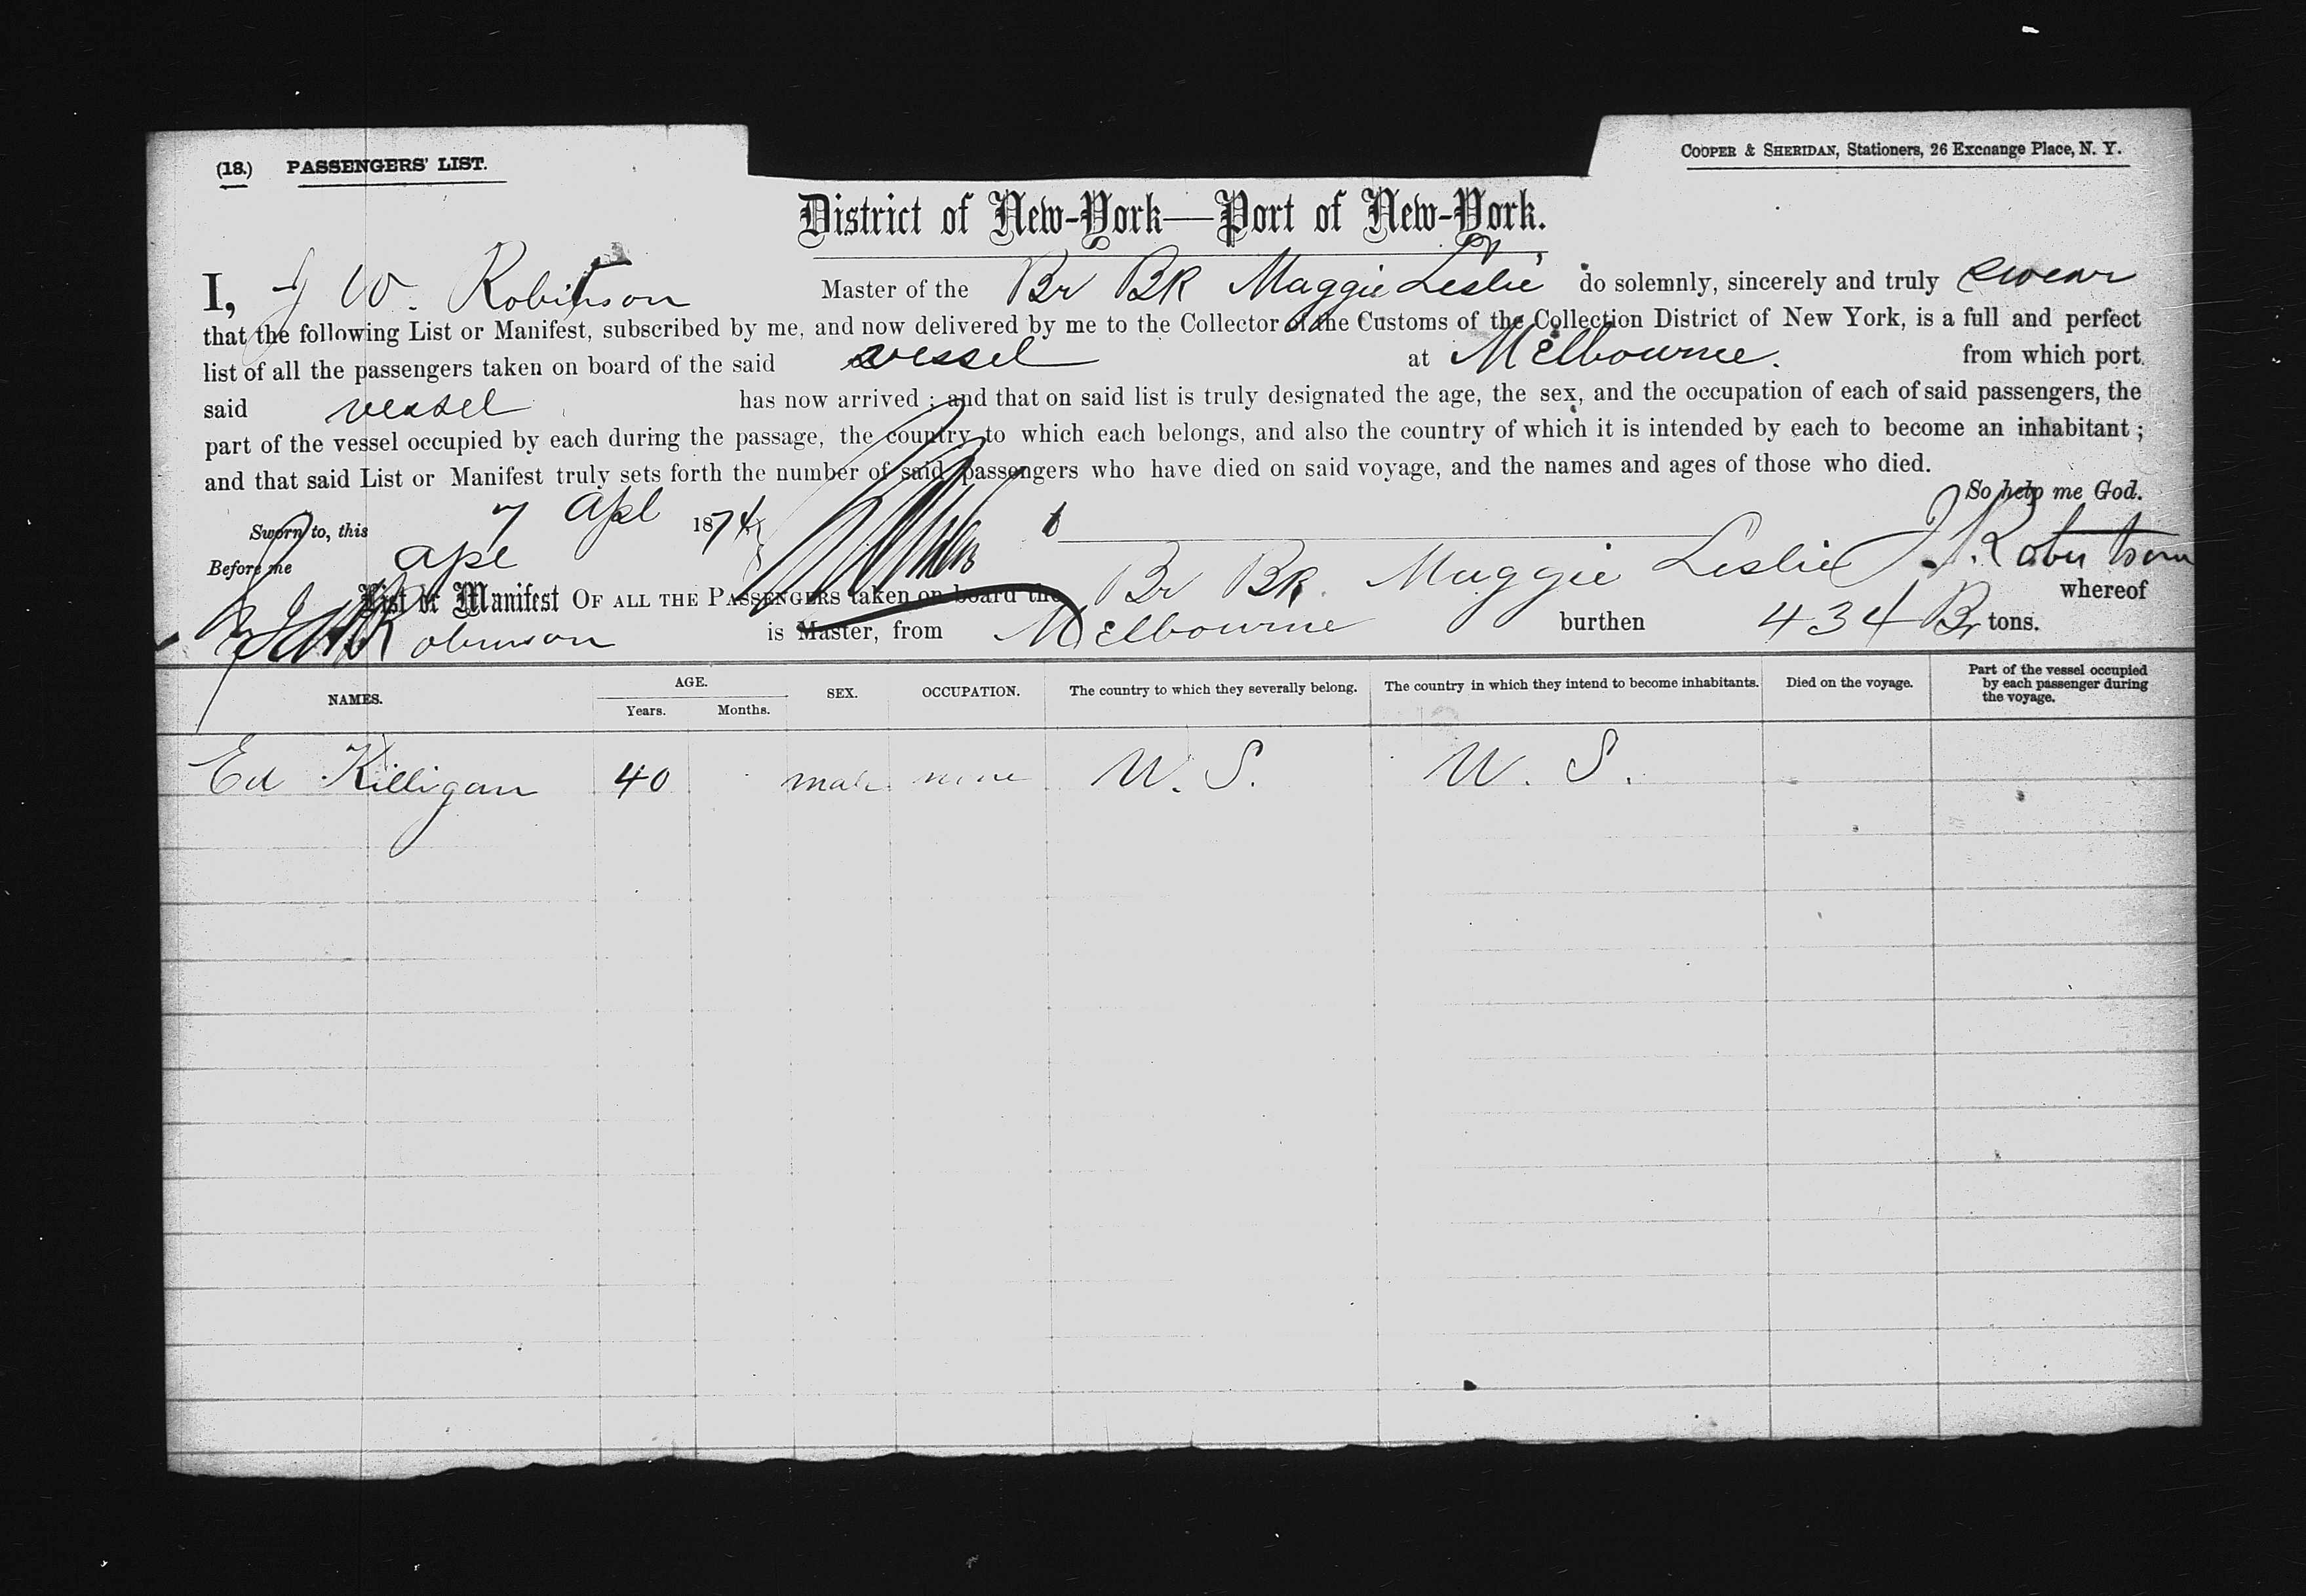 (18.) PASSENGERS' LIST.
COOPER & SHERIDAN, Stationers, 26 Exchange Place, N. Y.
District of New-York—Port of New-York.
I, J W. Robinson Master of the Br Bk Maggie Leslie do solemnly, sincerely and truly swear
that the following List or Manifest, subscribed by me, and now delivered by me to the Collector of the Customs of the Collection District of New York, is a full and perfect
list of all the passengers taken on board of the said vessel at Melbourne. from which port
said vessel has now arrived; and that on said list is truly designated the age, the sex, and the occupation of each of said passengers, the
part of the vessel occupied by each during the passage, the country to which each belongs, and also the country of which it is intended by each to become an inhabitant;
and that said List or Manifest truly sets forth the number of said passengers who have died on said voyage, and the names and ages of those who died.
So help me God.
Sworn to, this 7 Apl 1874
Before me
List or Manifest OF ALL THE PASSENGERS taken on board the Br Bk. Maggie Leslie whereof
Robinson is Master, from Melbourne burthen 434 Br tons.
NAMES. AGE. Years. Months. SEX. OCCUPATION. The country to which they severally belong. The country in which they intend to become inhabitants. Died on the voyage. Part of the vessel occupied by each passenger during the voyage.
Ed Killigan 40 male none U. S. U. S.